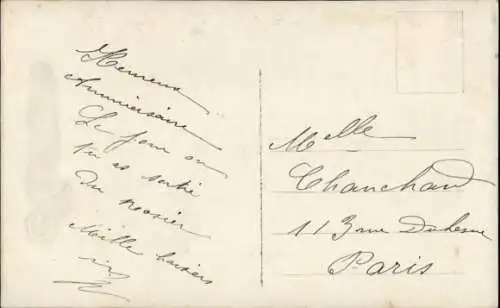 Heureux
Anniversaire
Le jour où
tu es sortie
du rosier
Mille baisers
Melle
Chanchard
113 rue Duhesme
Paris